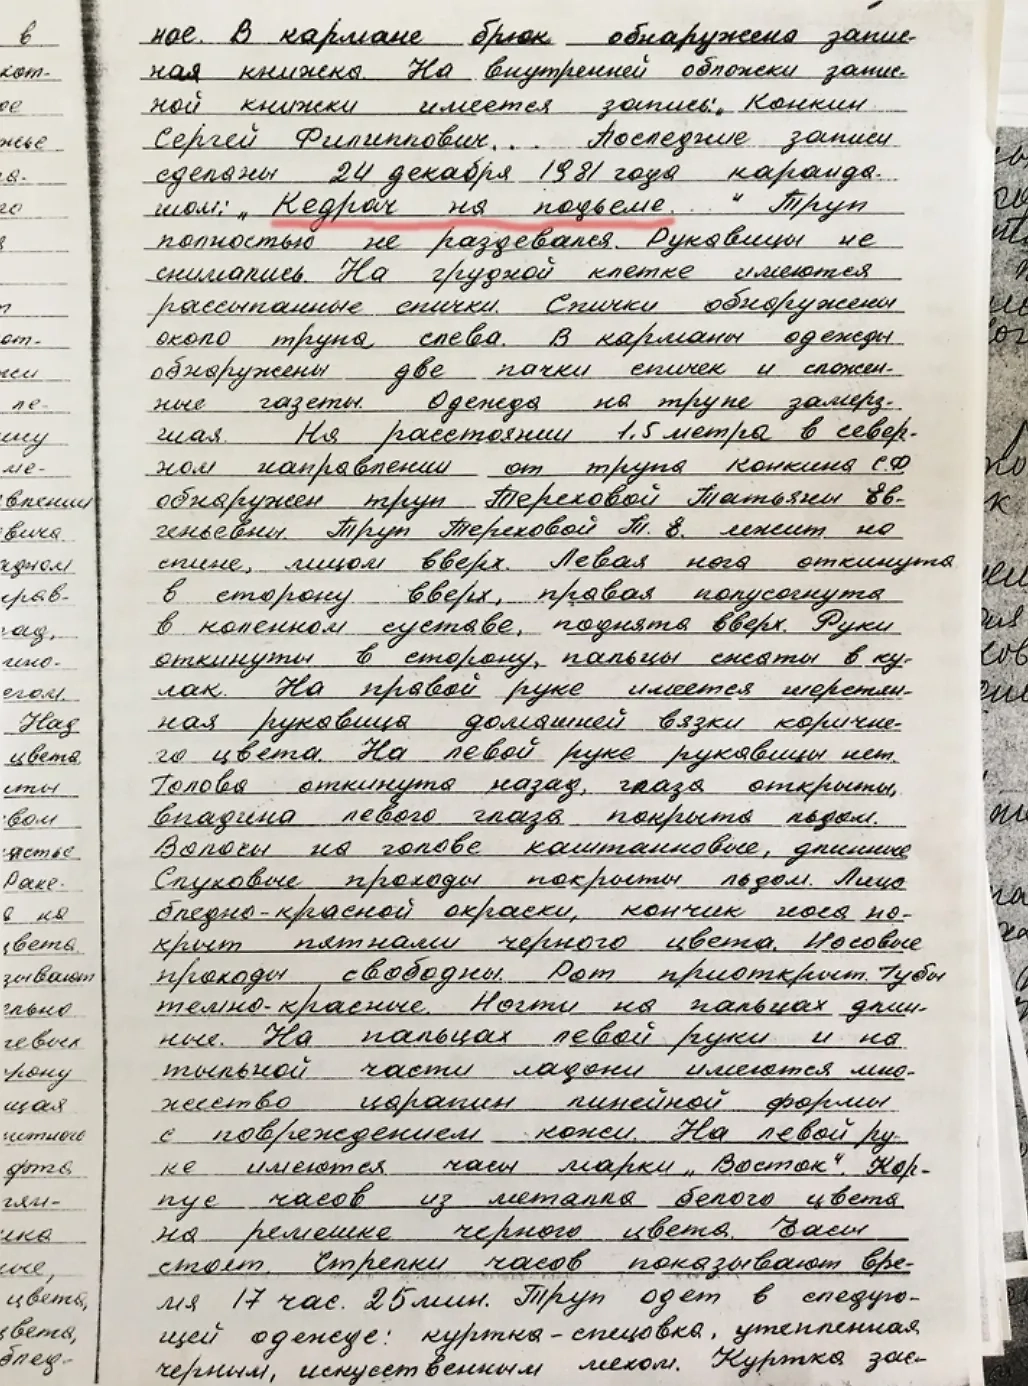 ное. В кармане брюк обнаружена запис-
ная книжка. На внутренней обложки запис-
ной книжки имеется запись: „Конкин
Сергей Филиппович... Последние записи
сделаны 24 декабря 1981 года каранда-
шом: „Кедрач на подъеме..." Труп
полностью не раздевался. Рукавицы не
снимались. На грудной клетке имеются
рассыпанные спички. Спички обнаружены
около трупа слева. В карманы одежды
обнаружены две пачки спичек и сложен-
ные газеты. Одежда на трупе замерз-
шая. На расстоянии 1.5 метра в север-
ном направлении от трупа Конкина С.Ф
обнаружен труп Тереховой Татьяны Ев-
геньевны. Труп Тереховой Т. Е. лежит на
спине, лицом вверх. Левая нога откинута
в сторону вверх, правая полусогнута
в коленном суставе, поднята вверх. Руки
откинуты в сторону, пальцы сжаты в ку-
лак. На правой руке имеется шерстян-
ная рукавица домашней вязки коричне-
го цвета. На левой руке рукавицы нет.
Голова откинута назад, глаза открыты,
впадина левого глаза покрыта льдом.
Волосы на голове каштанновые, длинные
Слуховые проходы покрыты льдом. Лицо
бледно-красной окраски, кончик носа по-
крыт пятнами черного цвета. Носовые
проходы свободны. Рот приоткрыт. Губы
темно-красные. Ногти на пальцах длин-
ные. На пальцах левой руки и на
тыльной части ладони имеются мно-
жество царапин линейной формы
с повреждением кожи. На левой ру-
ке имеются часы марки „Восток". Кор-
пус часов из металла белого цвета
на ремешке черного цвета. Часы
стоят. Стрелки часов показывают вре-
мя 17 час. 25 мин. Труп одет в следую-
щей одежде: куртка-спецовка, утепленная
черным, искусственным мехом. Куртка зас-